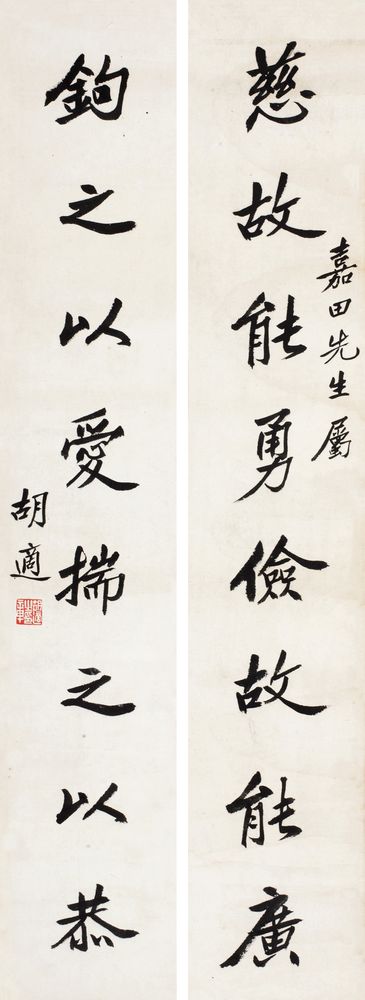 嘉田先生屬
慈故能勇儉故能廣
鉤之以愛揣之以恭
胡適